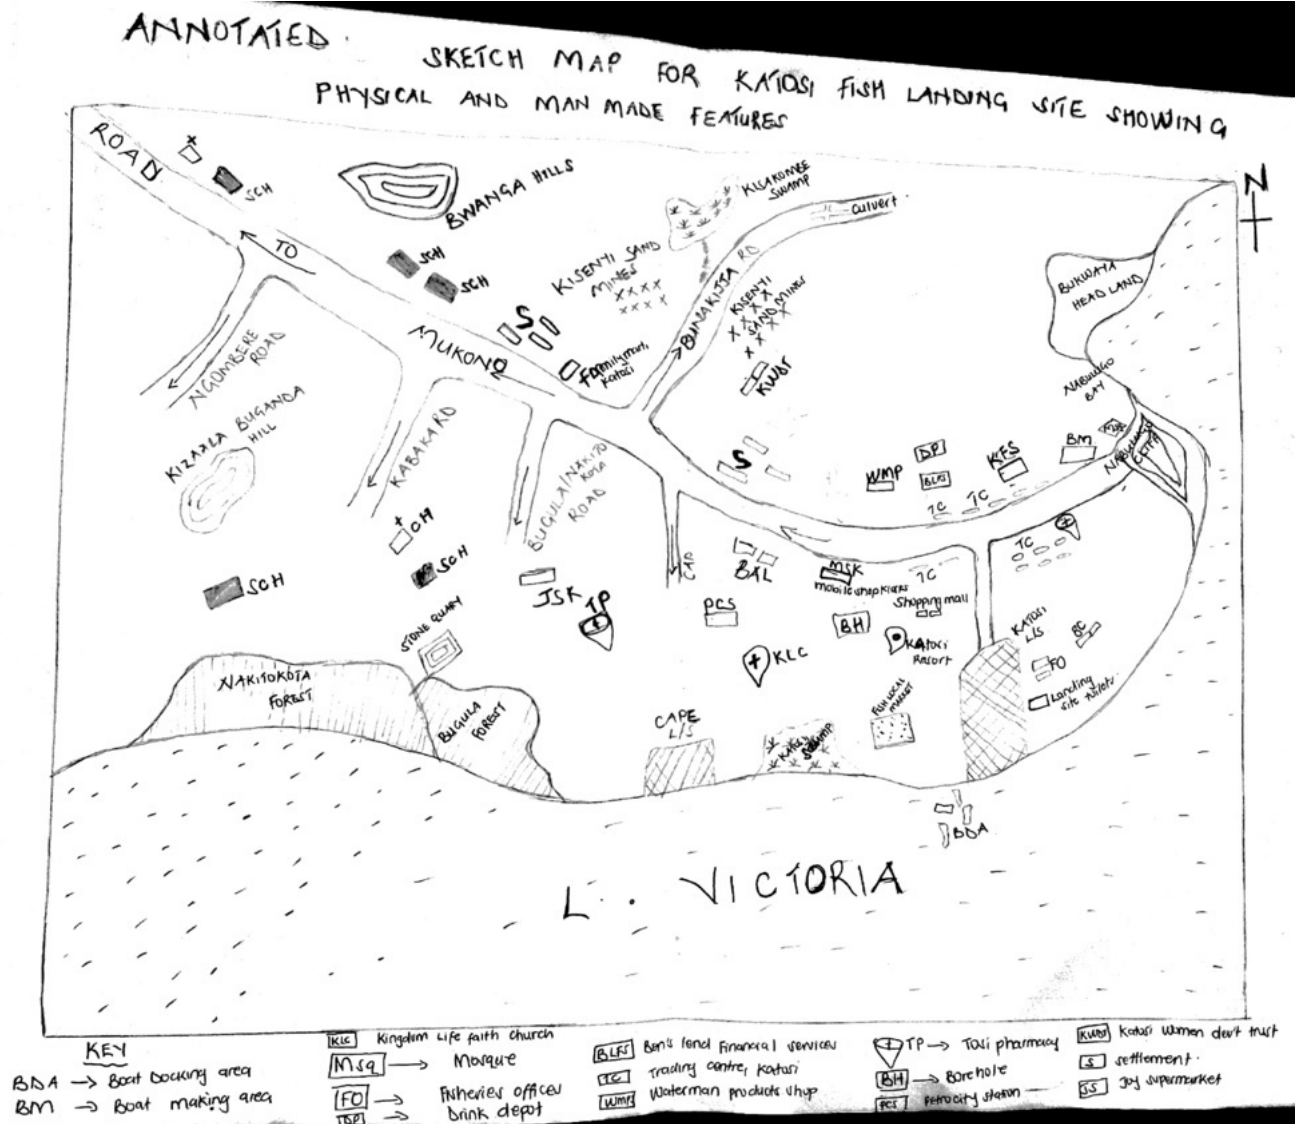 ANNOTATED.
SKETCH MAP FOR KATOSI FISH LANDING SITE SHOWING
PHYSICAL AND MAN MADE FEATURES
N
ROAD
SCH
BWANGA HILLS
KISAKOMBE
SWAMP
culvert
TO
SCH
SCH
KISENYI SAND
MINES
BUNAKIJJA RD
KISENYI
SAND MINES
BUKWAYA
HEAD LAND
MUKONO
S
Familymart,
Katosi
KWDT
NGOMBERE
ROAD
NABULUGO
BAY
KIZAALA BUGANDA
HILL
KABAKA RD
BUGULA/NAKITO
KOTA
ROAD
S
WMP
DP
BLFS
KFS
BM
TC
TC
CH
SCH
SCH
JSK
TP
BAL
MSK
mobile shop kiosks
TC
TC
Shopping mall
PCS
BH
KATOSI
L/S
BC
STONE QUARY
KLC
Katosi
Resort
FO
Landing
site toilets
NAKITOKOTA
FOREST
BUGULA
FOREST
CAPE
L/S
KATOSI
SWAMP
FISH LOCAL
MARKET
BDA
L. VICTORIA
KEY
BDA → Boat Docking area
BM → Boat making area
KLC Kingdom Life faith church
Msq → Mosque
FO → Fisheries offices
DP → Drink depot
BLFS Ben's lend Financial services
TC Trading centre, Katosi
WMP Waterman products shop
TP → Tosi pharmacy
BH → Borehole
PCS Petrocity station
KWDT Katosi Women dev't trust
S settlement.
SS Joy supermarket